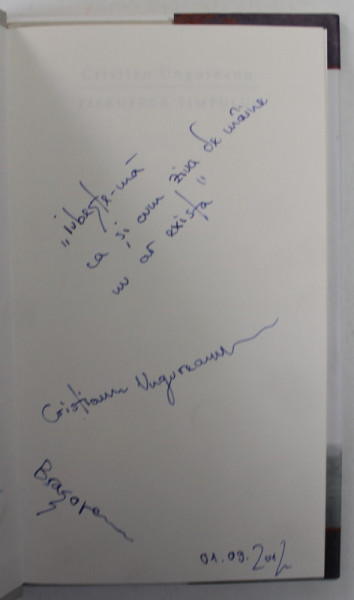 „iubește-mă
ca și cum ziua de mâine
nu ar exista"
Cristian Ungureanu
Brașov
01.09.2012